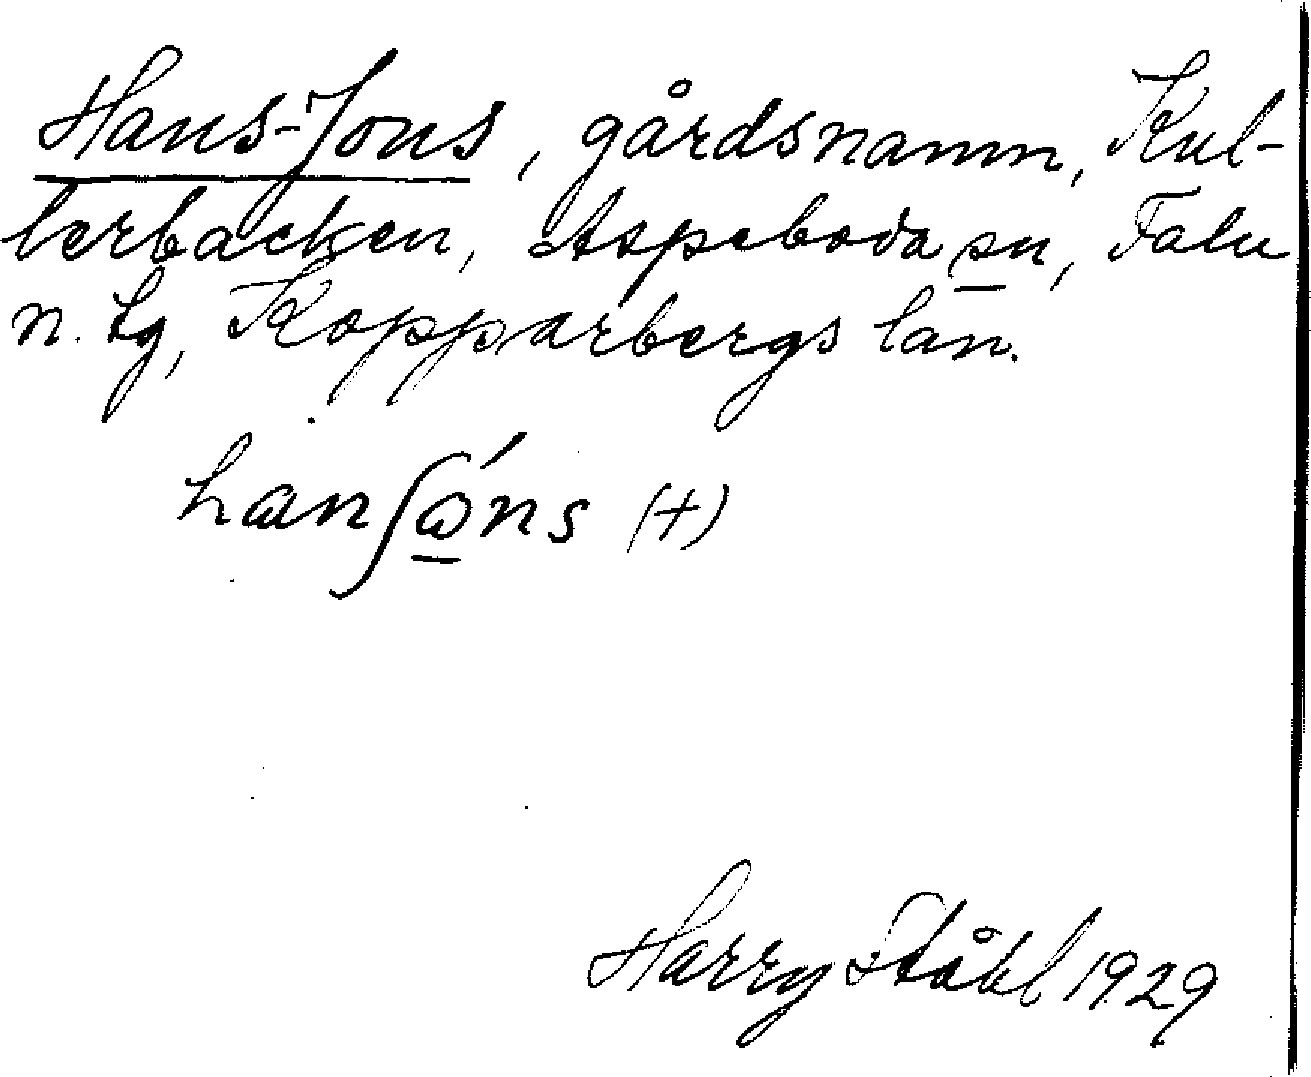 Hans-Jons, gårdsnamn, Kul-
lerbacken, Aspeboda sn, Falu
n. tg, Kopparbergs län.
hanʃώ̲ns (+)
Harry Ståhl 1929